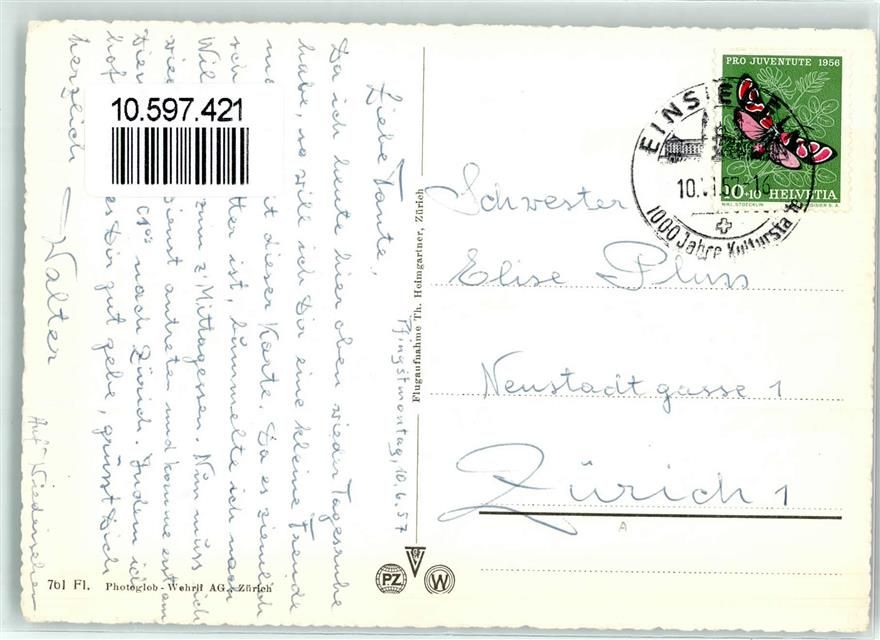 Pfingstmontag, 10.6.57
Liebe Tante,
Da ich heute hier oben wieder Tagesruhe
habe, so will ich Dir eine kleine Freude
mit dieser Karte. Da es ziemlich
ter ist, bummelte ich nach
Wil zum z'Mittagessen. Nun muss ich
wied Dienst antreten und komme erst am
nach Zürich. Indem ich
hof es Dir gut gehe, grüsst Dich
herzlich Walter
Auf Wiedersehen
10.597.421
701 Fl. Photoglob-Wehrli AG., Zürich
Flugaufnahme Th. Heimgartner, Zürich
PZ
W
PRO JUVENTUTE 1956
10+10 HELVETIA
NIKL. STOECKLIN
EINSIEDELN
1000 Jahre Kultursta
Schwester
Elise Pluss
Neustadtgasse 1
Zürich 1
A